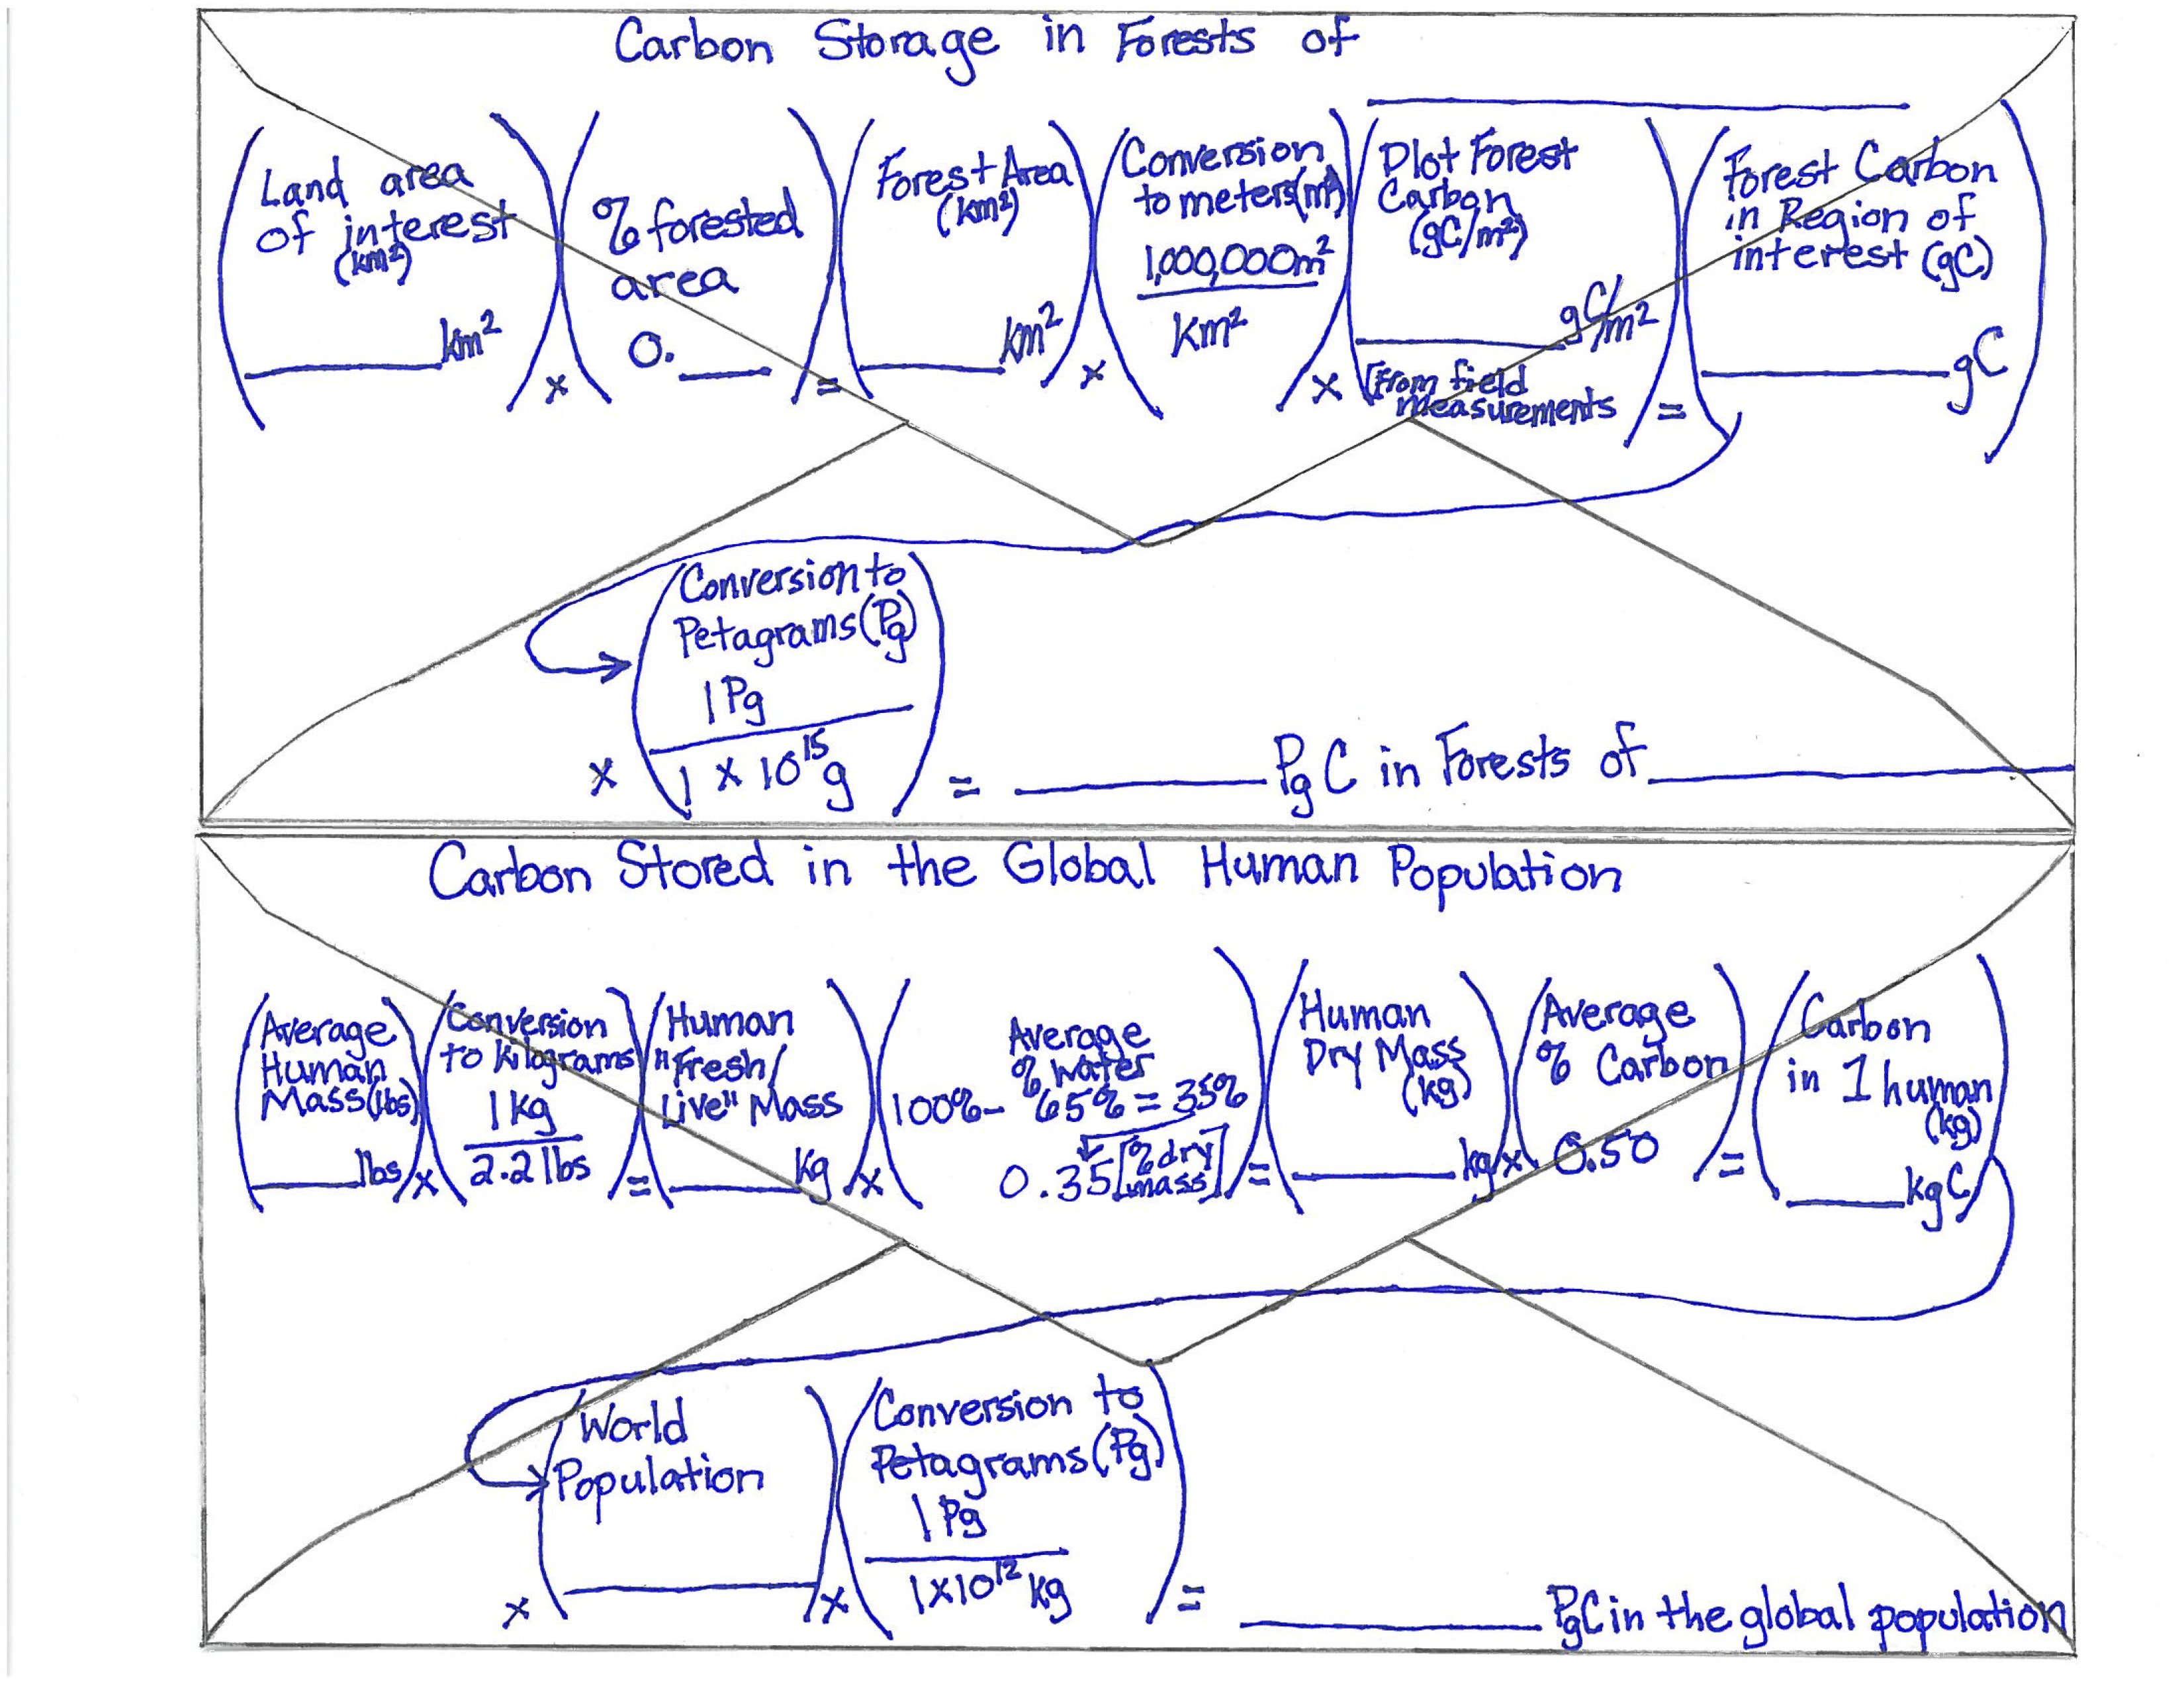 Carbon Storage in Forests of
Land area
of interest
(km²)
_____km²
x
% forested
area
0.___
=
Forest Area
(km²)
_____km²
x
Conversion
to meters(m²)
1,000,000m²
km²
x
Plot Forest
Carbon
(gC/m²)
_____gC/m²
[From field
measurements
=
Forest Carbon
in Region of
interest (gC)
_____gC
x
Conversion to
Petagrams (Pg)
1 Pg
1 x 10¹⁵g
= _____ PgC in Forests of _____
Carbon Stored in the Global Human Population
Average
Human
Mass(lbs)
____lbs
x
Conversion
to Kilograms
1 kg
2.2 lbs
=
Human
"Fresh/
Live" Mass
_____kg
x
Average
% water
100% - 65% = 35%
0.35 [% dry
mass]
=
Human
Dry Mass
(kg)
_____kg
x
Average
% Carbon
0.50
=
Carbon
in 1 human
(kg)
____kgC
x
World
Population
_____
x
Conversion to
Petagrams (Pg)
1 Pg
1x10¹² kg
= _____ PgC in the global population